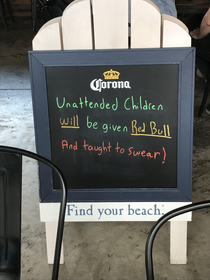 Corona
Unattended Children
will be given Red Bull
And taught to swear!
Find your beach.